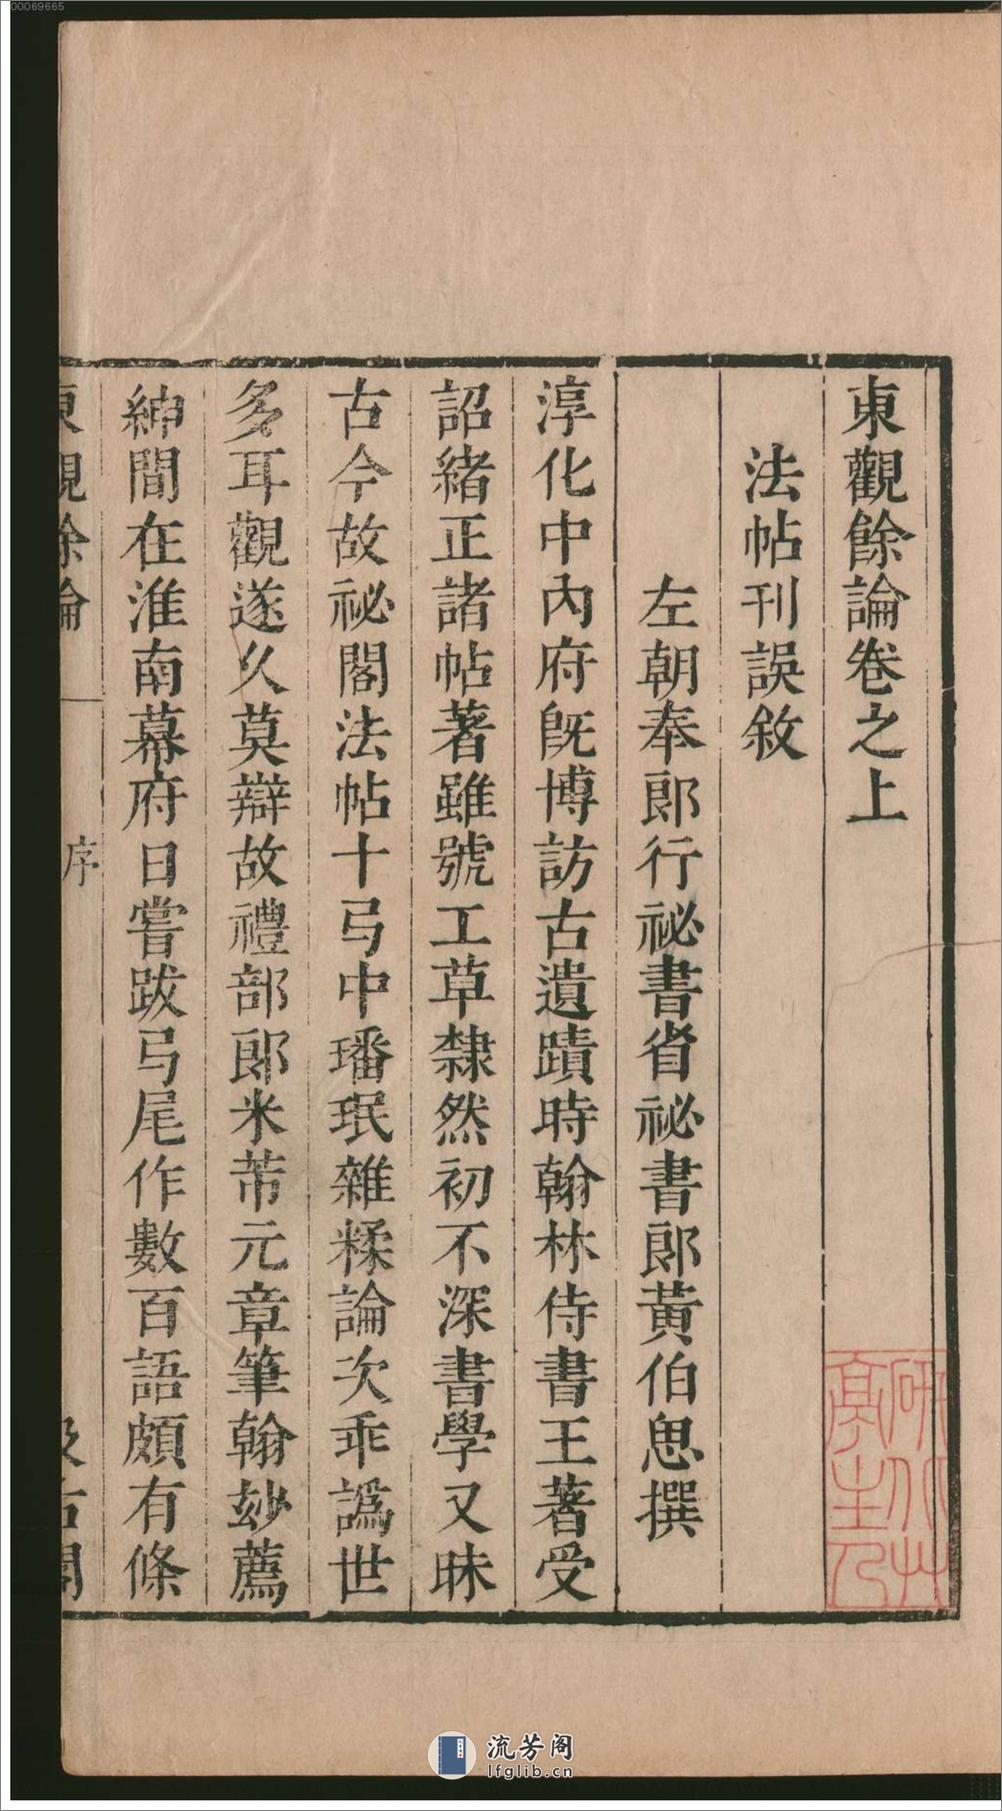 00069665
東觀餘論卷之上
法帖刊誤敘
左朝奉郎行祕書省祕書郎黃伯思撰
淳化中內府旣博訪古遺蹟時翰林侍書王著受
詔緒正諸帖著雖號工草隸然初不深書學又昧
古今故祕閣法帖十弓中璠珉雜糅論次乖譌世
多耳觀遂久莫辯故禮部郎米芾元章筆翰玅薦
紳間在淮南幕府日嘗跋弓尾作數百語頗有條
東觀餘論
一
序
汲古閣
流芳阁
lfglib.cn